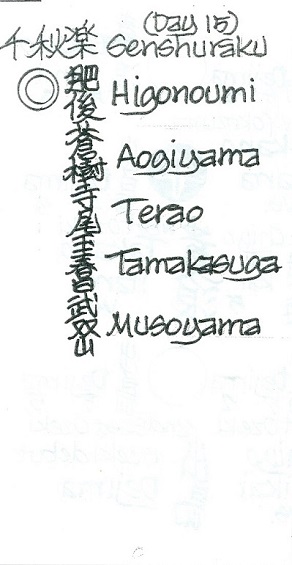 (Day 15)
千秋楽 Senshuraku
肥後 Higonoumi
蒼樹 Aogiyama
寺尾 Terao
玉春日 Tamakasuga
武双山 Musoyama